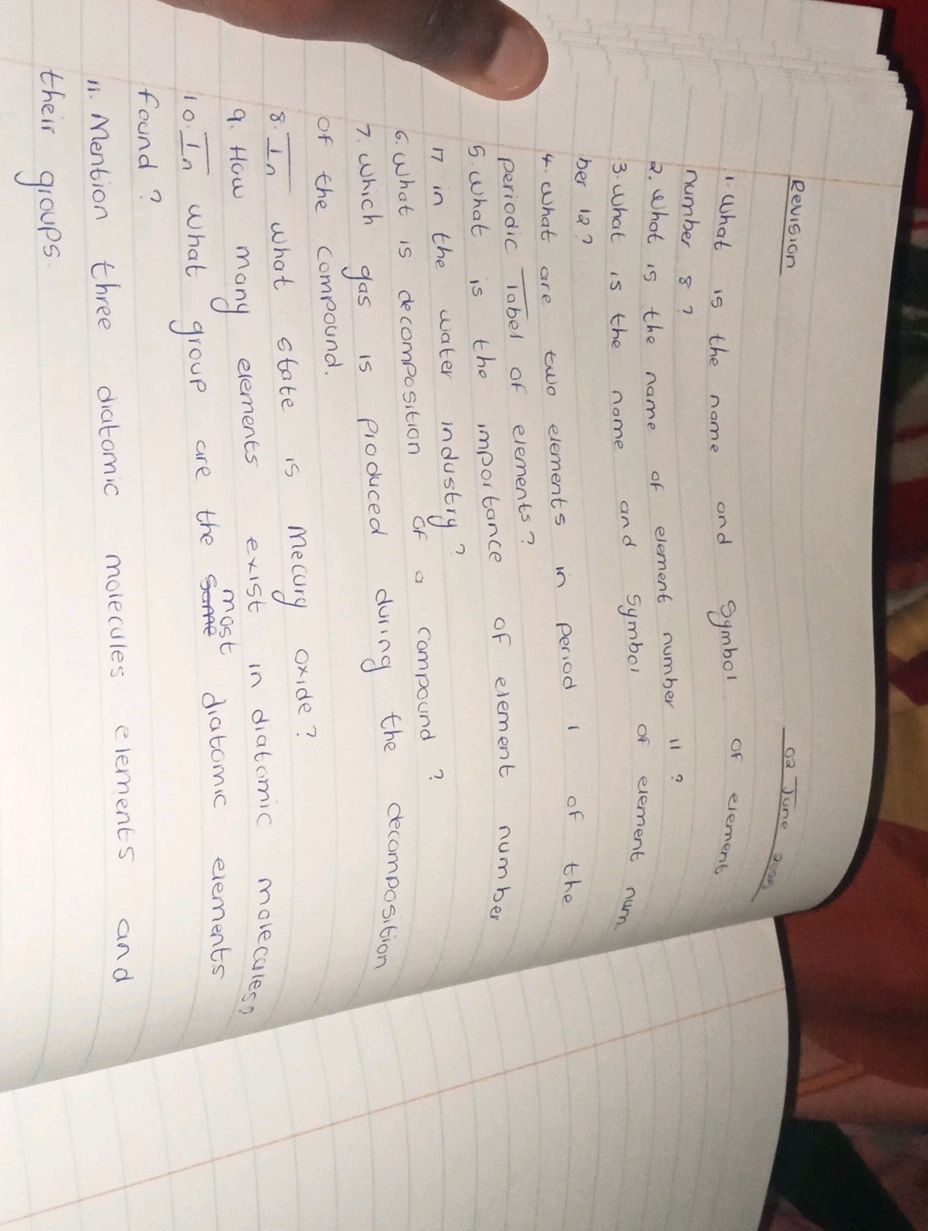 Revision
02 June 2025
1. What is the name and symbol of element
number 8?
2. What is the name of element number 11?
3. What is the name and symbol of element num
ber 12?
4. What are two elements in period 1 of the
periodic Tabel of elements?
5. What is the importance of element number
17 in the water industry?
6. What is decomposition of a compound?
7. Which gas is produced during the decomposition
of the compound.
8. In what state is Mecury oxide?
9. How many elements exist in diatomic molecules?
10. In what group are the same most diatomic elements
found?
11. Mention three diatomic molecules elements and
their groups.